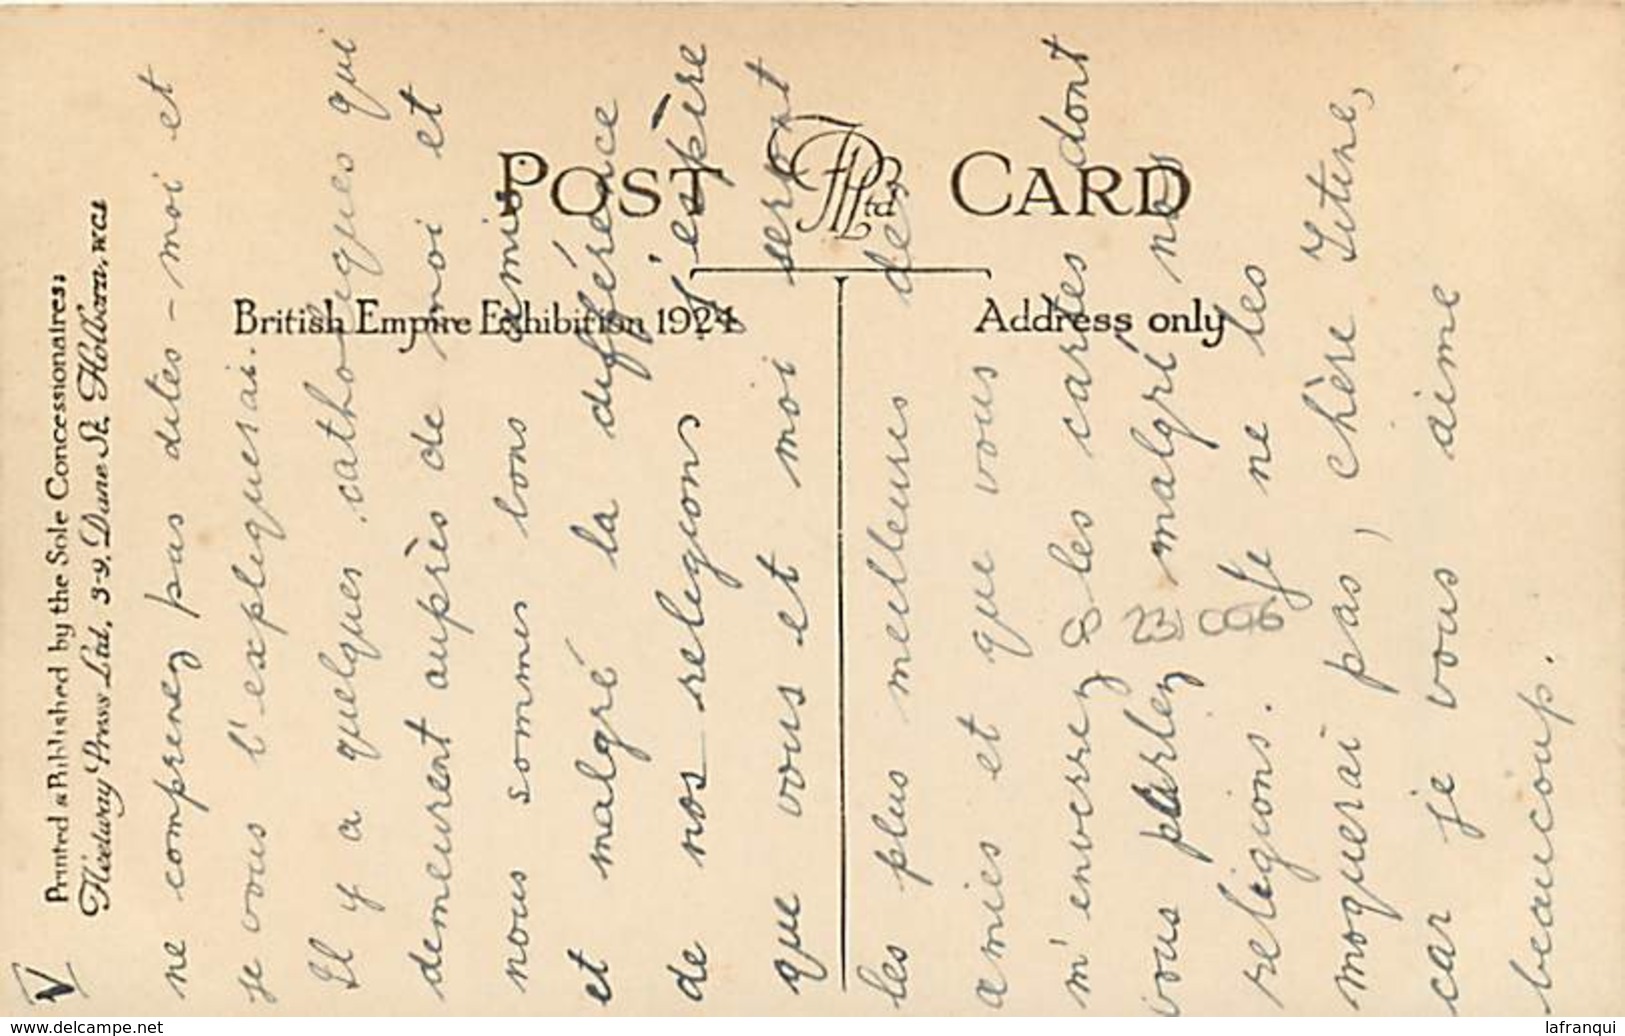 Printed & Published by the Sole Concessionaires:
Fleetway Press Ltd, 3-9, Dane St. Holborn, WC1
POST CARD
FP Ltd
British Empire Exhibition 1924
Address only
V
ne comprenez pas dites-moi et
je vous l'expliquerai.
Il y a quelques catholiques qui
demeurent auprès de moi et
nous sommes bons amis
et malgré la différence
de nos religions j'espère
que vous et moi seront
les plus meilleures des
amies et que vous
m'enverrez les cartes dont
vous parlez malgré nos
religions. Je ne les
moquerai pas, chère Titine,
car je vous aime
beaucoup.
8 231 006
www.delcampe.net
lafranqui